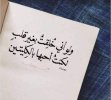 ولو أني خلقت بغير قلب
لكنت أحبها بالرئتين